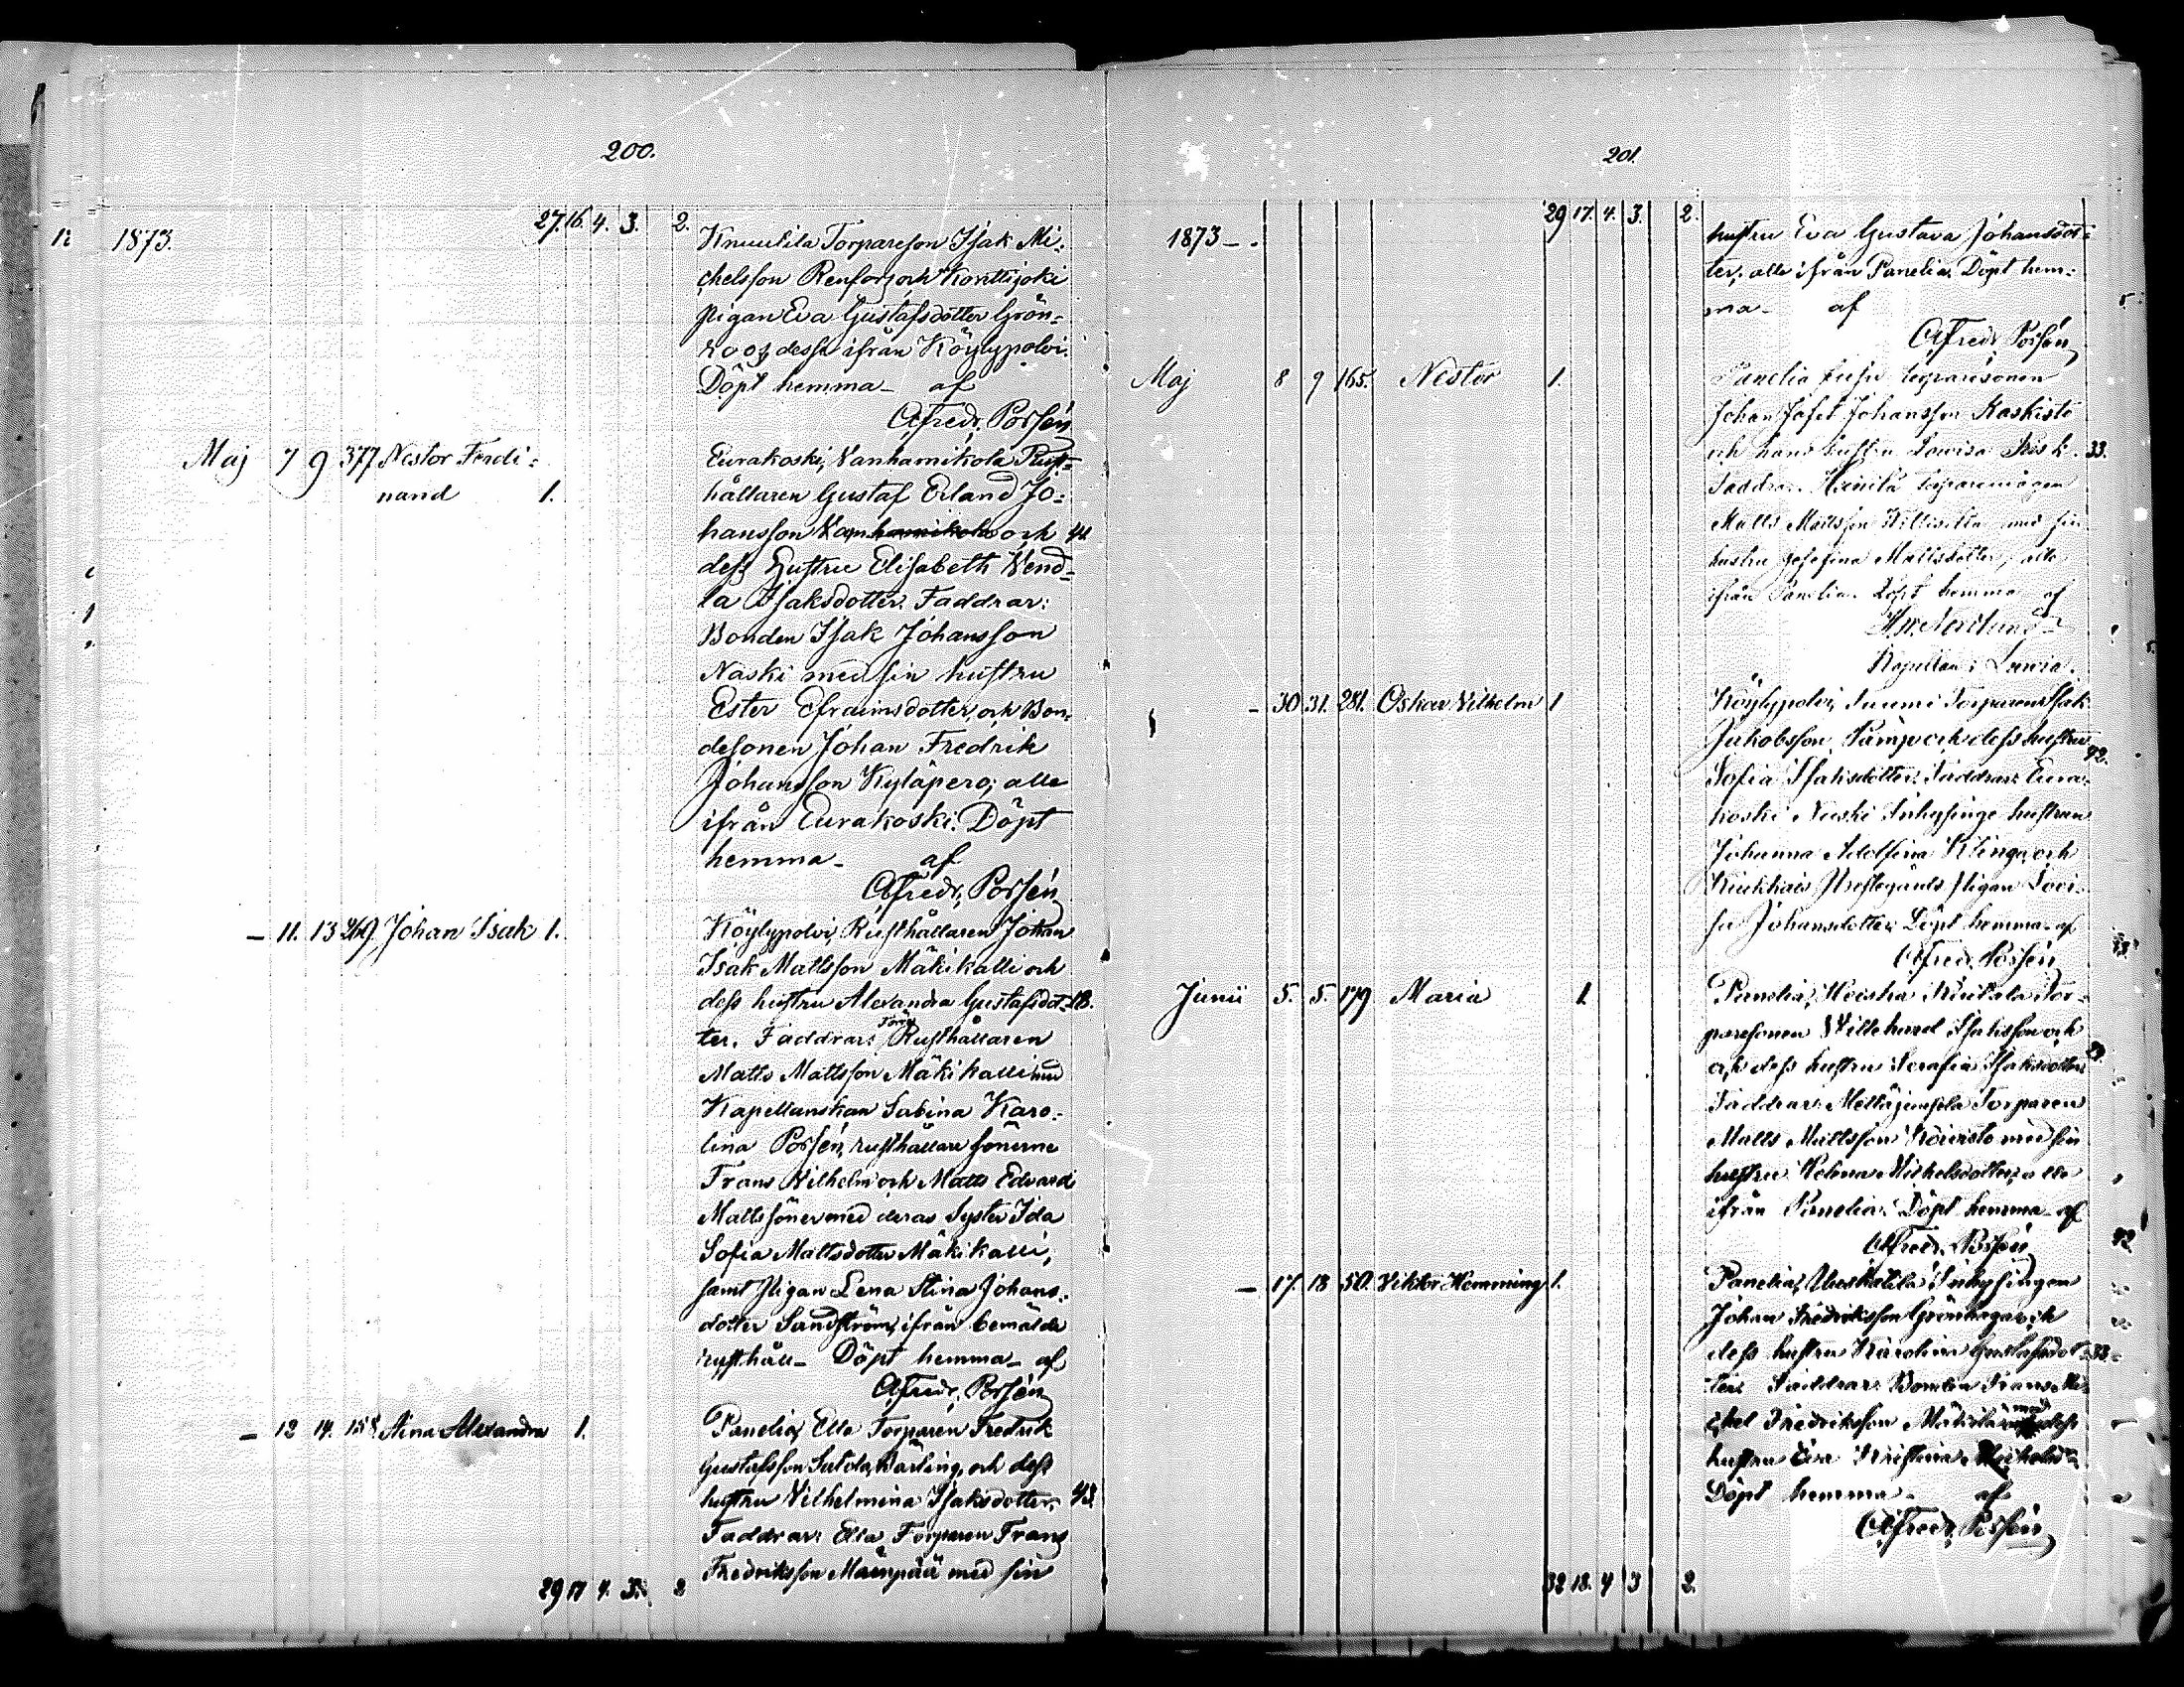 200.
27. 16. 4. 3. 2.
1873.
Knuutila Torpareson Isak Mi-
chelsson Renfors och Konttijoki
pigan Eva Gustafsdotter Grön-
roos, dessa ifrån Köylypolvi.
Döpt hemma - af
Alfredr. Porsén
Maj 7 9 377 Nestor Ferdi- Eurakoski, Vanhamikola Rust-
nand 1. hållaren Gustaf Erland Jo-
hansson Vanhamikola och 44
dess Hustru Elisabeth Vend-
la Isaksdotter. Faddrar:
Bonden Isak Johansson
Naski med sin hustru
Ester Efraimsdotter, och Bon-
desonen Johan Fredrik
Johansson Kyläpero; alle
ifrån Eurakoski. Döpt
hemma - af
Alfredr. Porsén
- 11. 13 269. Johan Isak 1. Köylypolvi, Rusthållaren Johan
Isak Mattsson Mäkikalli och
dess hustru Alexandra Gustafsdot- 18.
ter. Faddrar: Rusthållaren
Matts Mattsson Mäkikalli med
Kapellanskan Sabina Karo-
lina Porsén, rusthållare sönerne
Frans Vilhelm och Matts Edvard
Mattssöner med deras Syster Ida
Sofia Mattsdotter Mäkikalli,
samt Pigan Lena Stina Johans-
dotter Sandström, ifrån bemälde
rusthåll - Döpt hemma - af
Alfredr. Porsén
- 12 14. 158 Aina Alexandra 1. Panelia, Ella Torparen Fredrik
Gustafsson Satola, Värling, och dess
hustru Vilhelmina Isaksdotter. 43.
Faddrar: Ella Torparen Frans
Fredriksson Mäenpää med sin
29 17 4. 3. 2
201.
29 17. 4. 3. 2.
1873 -. hustru Eva Gustava Johansdot-
ter, alle ifrån Panelia. Döpt hem-
ma - af
Alfredr. Porsén
Maj 8 9 165. Nestor 1. Panelia torparesonen
Johan Jafet Johansson Kaskisto
och hans hustru Lowisa 33.
Faddrar:
Matts Mattsson med sin
hustru Josefina Mattsdotter, alle
ifrån Panelia. Döpt hemma af
Kapellan i Luvia.
- 30 31. 281. Oskar Vilhelm 1 Köylypolvi, Torparen Isak
Jakobsson och dess hustru 42.
Sofia Isaksdotter. Faddrar: Eura-
koski Naski Inhysinge hustrun
Johanna Adolfina Klinga, och
Kiukkais Prestegårds Pigan Lovi-
sa Johansdotter. Döpt hemma - af
Alfredr. Porsén
Junii 5. 5. 179 Maria 1. Panelia, Tor-
paresonen Villehard Isaksson och
och dess hustru Serafia Isaksdotter
Faddrar: Torparen
Matts Mattsson Koivisto med sin
hustru Helena Mickelsdotter, alle
ifrån Panelia. Döpt hemma af
Alfredr. Porsén
- 17. 18 50. Viktor Hemming 1. Panelia, Inhysingen
Johan Fredriksson Grönhaga och
dess hustru Karolina Gustafsdot- 33.
ter. Faddrar: Bonden Frans Mi-
chel Fredriksson med dess
hustru Eva Kristina
Döpt hemma - af
Alfredr. Porsén
32 18. 4 3 2.